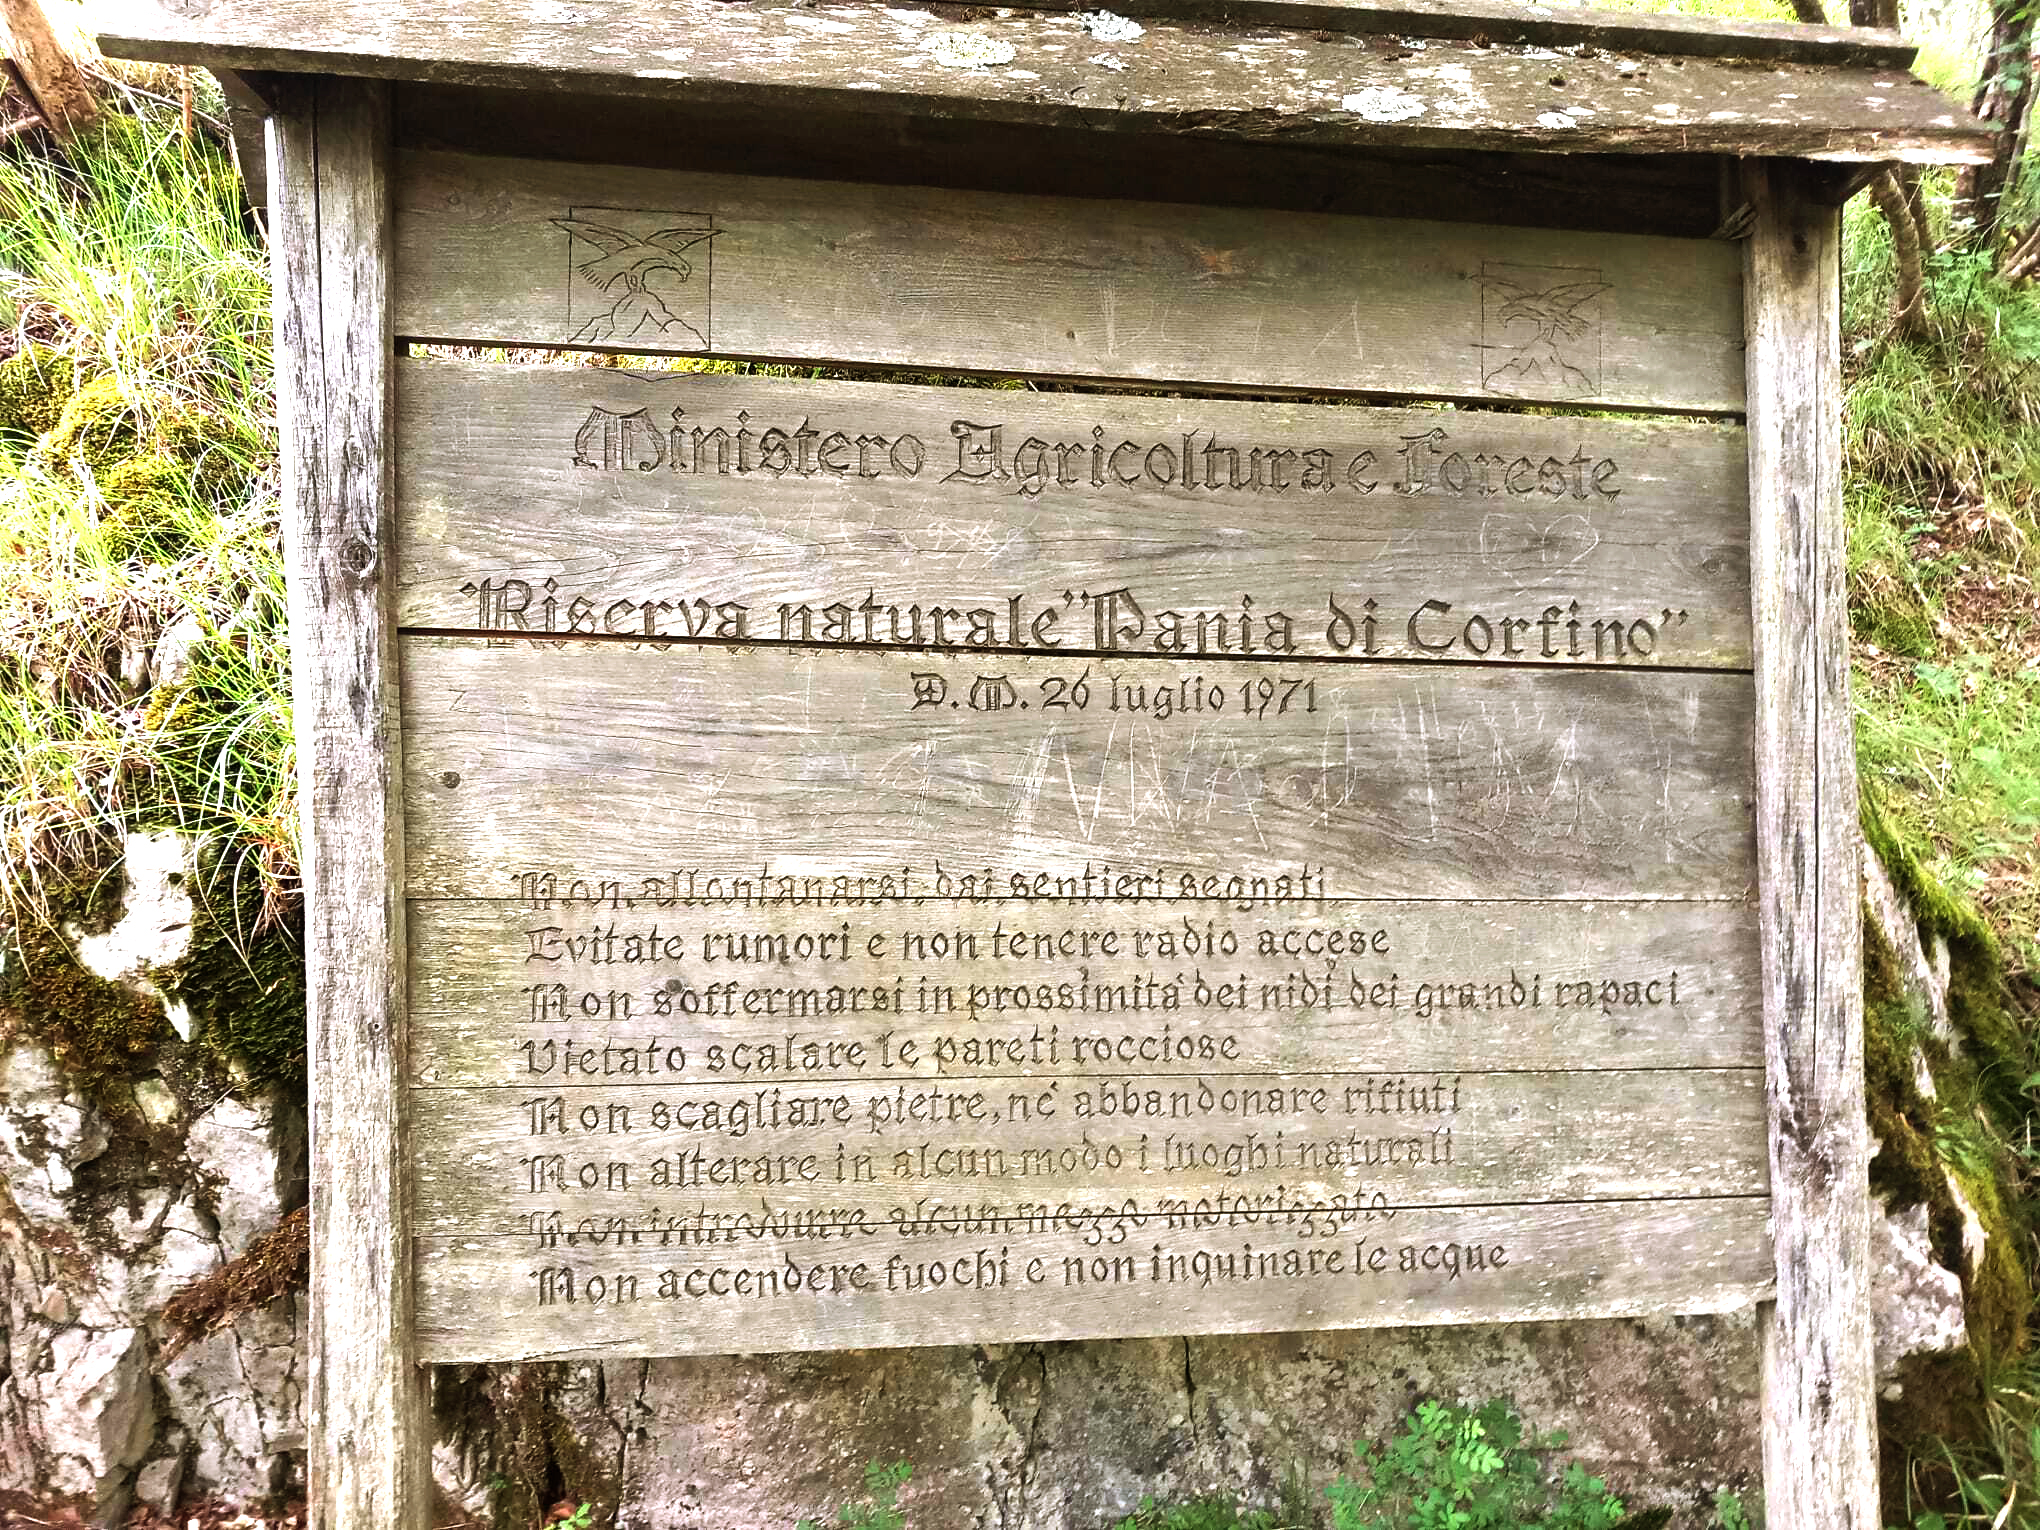 Ministero Agricoltura e Foreste
Riserva naturale "Pania di Corfino"
D.M. 26 luglio 1971
Non allontanarsi dai sentieri segnati
Evitate rumori e non tenere radio accese
Non soffermarsi in prossimità dei nidi dei grandi rapaci
Vietato scalare le pareti rocciose
Non scagliare pietre, né abbandonare rifiuti
Non alterare in alcun modo i luoghi naturali
Non introdurre alcun mezzo motorizzato
Non accendere fuochi e non inquinare le acque